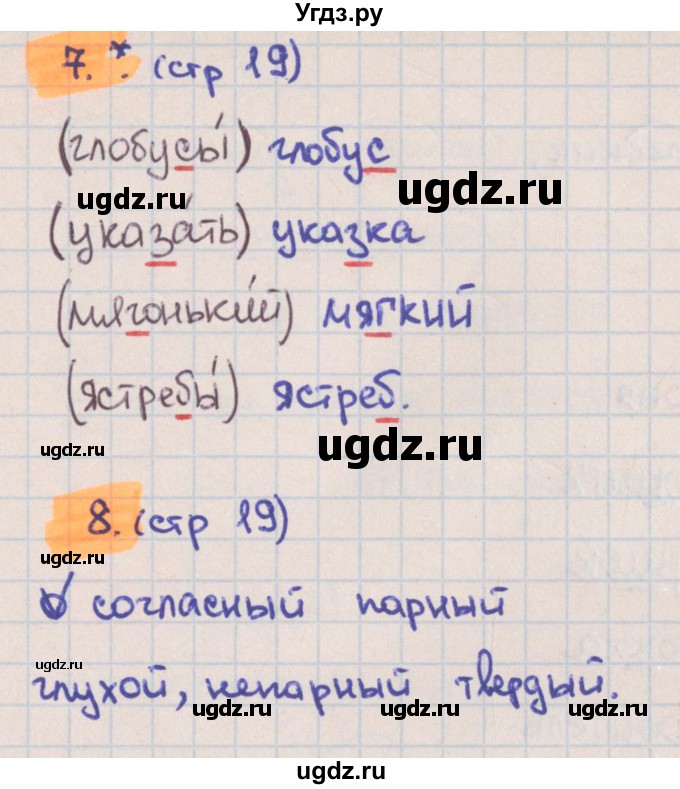 Угдз.ру
7.* (стр 19)
(глобусы́) глобус
ugdz.ru ugdz.ru
(указа́ть) указка
(мягонький) мягкий
(ястребы́) ястреб.
ugdz.ru ugdz.ru
8. (стр 19)
ugdz.ru
согласный парный
ugdz.ru
глухой, непарный твердый.
ugdz.ru ugdz.ru ugdz.ru
ugdz.ru